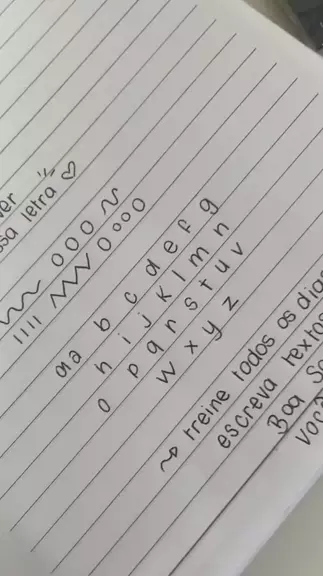 ssa letra ♡
000 ~
1111 0000
aa b c d e f g
h i j k l m n
o p q r s t u v
w x y z
~> treine todos os dias
escreva textos
Boa